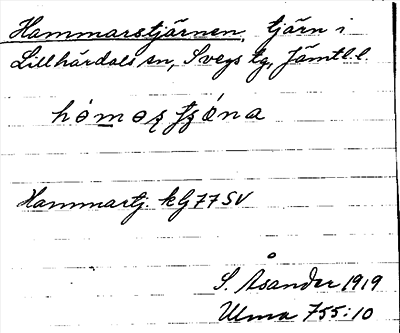 Hammarstjärnen, tjärn i
Lillhärdals sn, Svegs tg, Jämtl. l.
Hammartj. kg 77 SV
S. Åsander 1919
Ulma 755:10